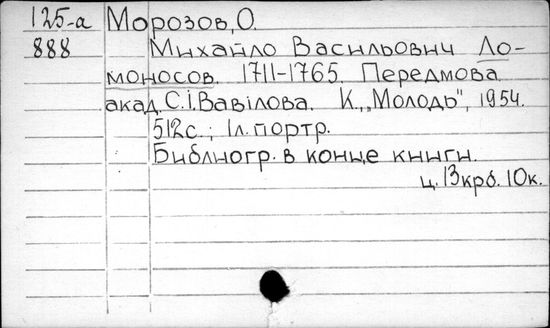 125-а Морозов, О.
888 Михайло Васильович Ло-
моносов. 1711-1765. Передмова
акад. С.І. Вавілова. К., „Молодь", 1954.
512с.; Іл. портр.
Библиогр. в конце книги.
ц. 13крб. 10к.